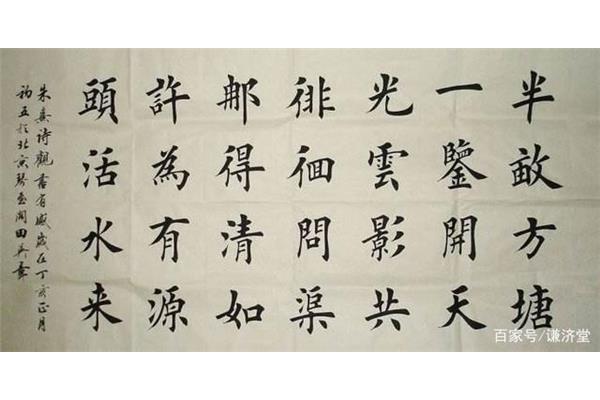 半畝方塘
一鑒開天
光雲影共
徘徊問渠
那得清如
許為有源
頭活水来
朱熹诗觀書有感歲在丁亥正月
初五於北京閣田英章
百家号/谦济堂